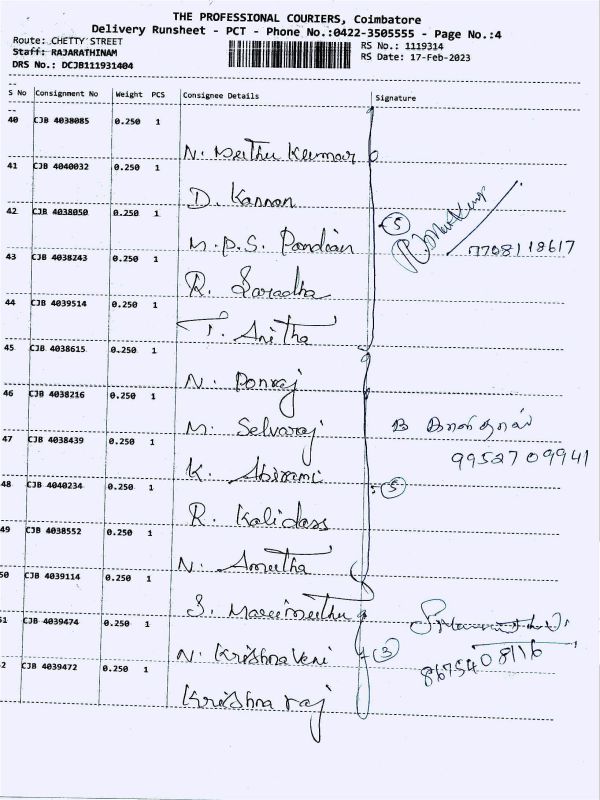 THE PROFESSIONAL COURIERS, Coimbatore
Delivery Runsheet - PCT - Phone No.:0422-3505555 - Page No.:4
Route: CHETTY STREET
RS No.: 1119314
Staff: RAJARATHINAM
RS Date: 17-Feb-2023
DRS No.: DCJB111931404
S No Consignment No Weight PCS Consignee Details Signature
40 CJB 4038085 0.250 1
N. Muthu Kumar
41 CJB 4040032 0.250 1
D. Kannan
42 CJB 4038050 0.250 1
5
M.P.S. Pandian
7708118617
43 CJB 4038243 0.250 1
R. Saradha
44 CJB 4039514 0.250 1
T. Anitha
45 CJB 4038615 0.250 1
N. Ponraj
46 CJB 4038216 0.250 1
M. Selvaraj
47 CJB 4038439 0.250 1
9952709941
K. Abirami
48 CJB 4040234 0.250 1
5
R. Kalidass
49 CJB 4038552 0.250 1
N. Amutha
50 CJB 4039114 0.250 1
S. Marimuthu
51 CJB 4039474 0.250 1
N. KrishnaVeni
3
8675408116
52 CJB 4039472 0.250 1
Krishna raj